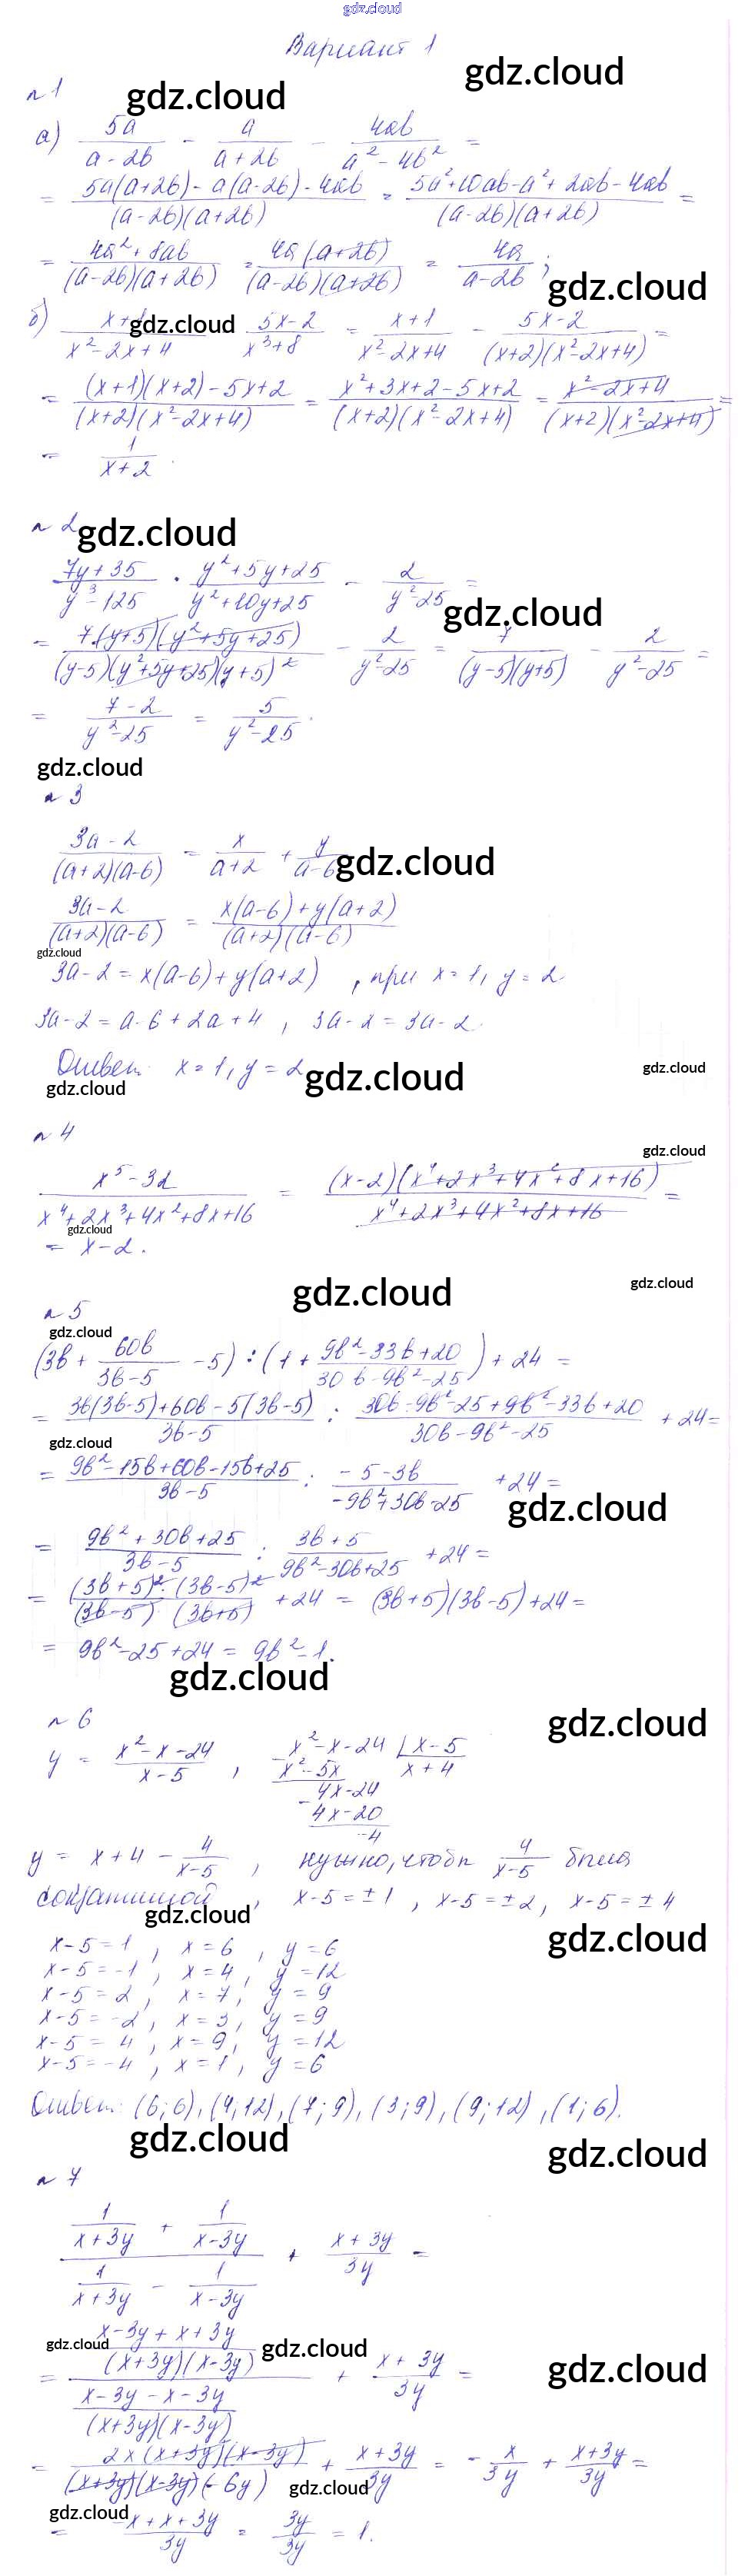 gdz.cloud
Вариант 1
gdz.cloud
gdz.cloud
n 1
а) 5a/(a-2b) - a/(a+2b) - 4ab/(a²-4b²) =
= (5a(a+2b) - a(a-2b) - 4ab)/((a-2b)(a+2b)) = (5a²+10ab-a²+2ab-4ab)/((a-2b)(a+2b)) =
= (4a²+8ab)/((a-2b)(a+2b)) = (4a(a+2b))/((a-2b)(a+2b)) = 4a/(a-2b);
gdz.cloud
gdz.cloud
б) (x+1)/(x²-2x+4) (5x-2)/(x³+8) = (x+1)/(x²-2x+4) - (5x-2)/((x+2)(x²-2x+4)) =
= ((x+1)(x+2)-5x+2)/((x+2)(x²-2x+4)) = (x²+3x+2-5x+2)/((x+2)(x²-2x+4)) = (x²-2x+4)/((x+2)(x²-2x+4)) =
= 1/(x+2).
n 2
gdz.cloud
(7y+35)/(y³-125) · (y²+5y+25)/(y²+10y+25) - 2/(y²-25) =
gdz.cloud
= (7(y+5)(y²+5y+25))/((y-5)(y²+5y+25)(y+5)²) - 2/(y²-25) = 7/((y-5)(y+5)) - 2/(y²-25) =
= (7-2)/(y²-25) = 5/(y²-25).
gdz.cloud
n 3
(3a-2)/((a+2)(a-6)) = x/(a+2) + y/(a-6)
gdz.cloud
(3a-2)/((a+2)(a-6)) = (x(a-6)+y(a+2))/((a+2)(a-6))
gdz.cloud
3a-2 = x(a-6)+y(a+2), при x=1, y=2
3a-2 = a-6+2a+4, 3a-2=3a-2.
Ответ: x=1, y=2
gdz.cloud
gdz.cloud
gdz.cloud
n 4
gdz.cloud
(x⁵-32)/(x⁴+2x³+4x²+8x+16) = ((x-2)(x⁴+2x³+4x²+8x+16))/(x⁴+2x³+4x²+8x+16) =
gdz.cloud
= x-2.
gdz.cloud
gdz.cloud
n 5
gdz.cloud
(3b + 60b/(3b-5) - 5) : (1 + (9b²-33b+20)/(30b-9b²-25)) + 24 =
= (3b(3b-5)+60b-5(3b-5))/(3b-5) : (30b-9b²-25+9b²-33b+20)/(30b-9b²-25) + 24 =
gdz.cloud
= (9b²-15b+60b-15b+25)/(3b-5) : (-5-3b)/(-9b²+30b-25) + 24 =
gdz.cloud
= (9b²+30b+25)/(3b-5) : (3b+5)/(9b²-30b+25) + 24 =
= ((3b+5)²·(3b-5)²)/((3b-5)·(3b+5)) + 24 = (3b+5)(3b-5)+24 =
= 9b²-25+24 = 9b²-1.
gdz.cloud
n 6
gdz.cloud
y = (x²-x-24)/(x-5), x²-x-24 | x-5
x²-5x x+4
4x-24
4x-20
-4
y = x+4 - 4/(x-5), нужно, чтобы 4/(x-5) была
сократимой, x-5=±1, x-5=±2, x-5=±4
gdz.cloud
gdz.cloud
x-5=1, x=6, y=6
x-5=-1, x=4, y=12
x-5=2, x=7, y=9
x-5=-2, x=3, y=9
x-5=4, x=9, y=12
x-5=-4, x=1, y=6
Ответ: (6;6), (4;12), (7;9), (3;9), (9;12), (1;6).
gdz.cloud
gdz.cloud
n 7
(1/(x+3y) + 1/(x-3y))/(1/(x+3y) - 1/(x-3y)) + (x+3y)/3y =
gdz.cloud
gdz.cloud
gdz.cloud
= ((x-3y+x+3y)/((x+3y)(x-3y)))/((x-3y-x-3y)/((x+3y)(x-3y))) + (x+3y)/3y =
= (2x(x+3y)(x-3y))/((x+3y)(x-3y)(-6y)) + (x+3y)/3y = -x/3y + (x+3y)/3y =
gdz.cloud
gdz.cloud
= (-x+x+3y)/3y = 3y/3y = 1.